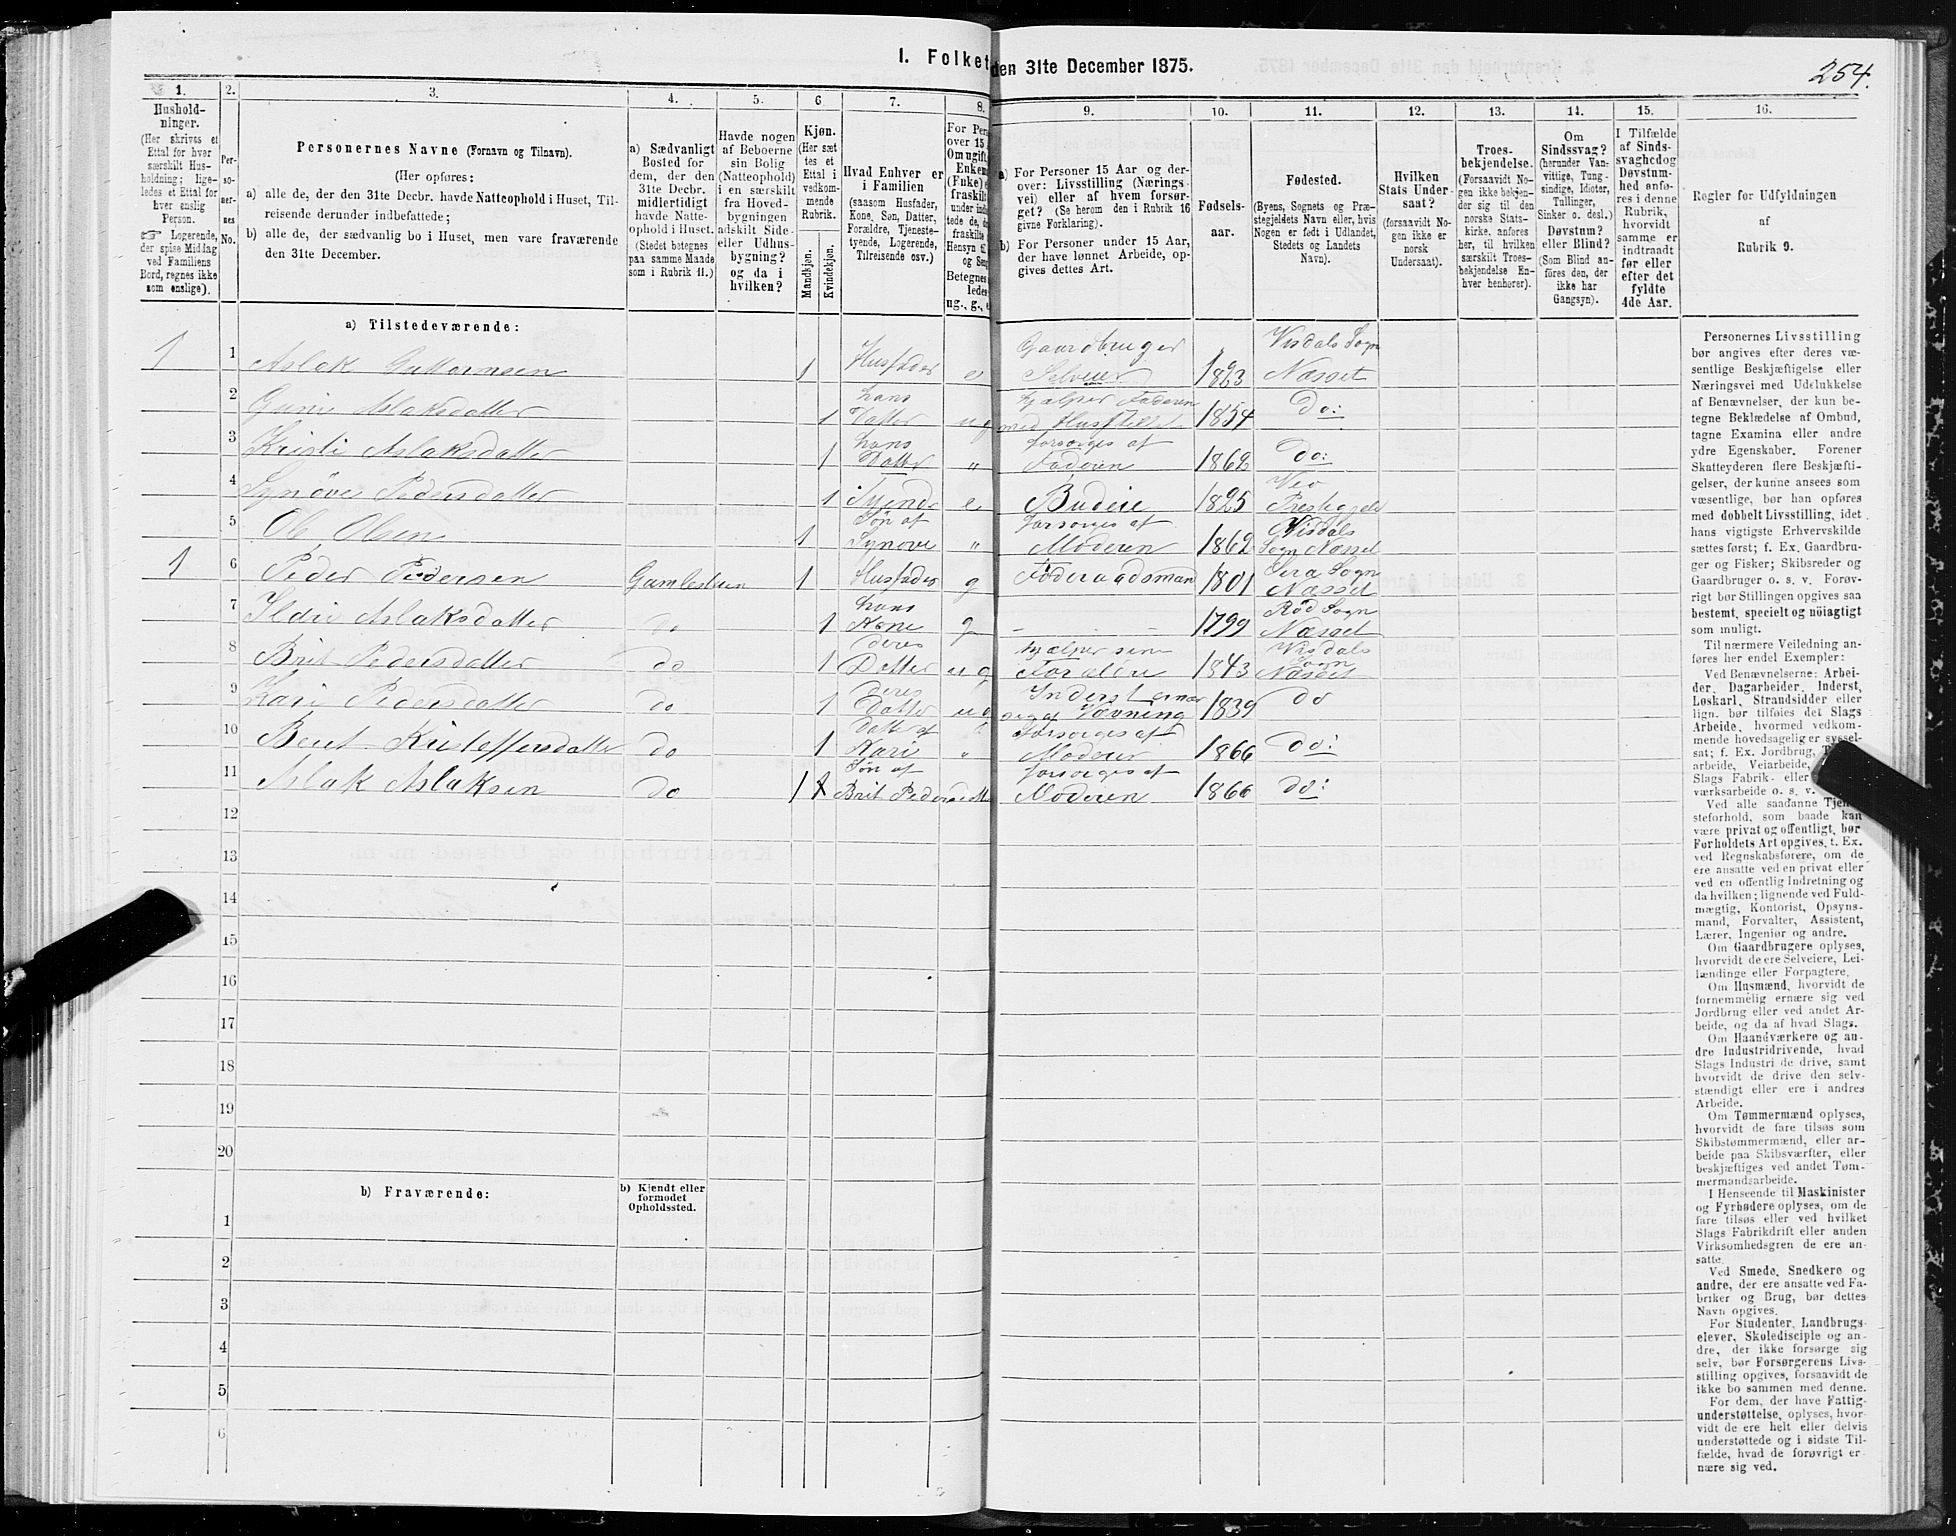 I. Folket
den 31te December 1875.
254.
1. 2. 3. 4. 5. 6 7. 8. 9. 10. 11. 12. 13. 14. 15. 16.
Hushold-
ninger.
(Her skrives et
Ettal for hver
særskilt Hus-
holdning; lige-
ledes et Ettal for
hver enslig
Person.
☞ Logerende,
der spise Middag
ved Familiens
Bord, regnes ikke
som enslige).
Per-
so-
ner-
nes
No.
Personernes Navne (Fornavn og Tilnavn).
(Her opføres:
a) alle de, der den 31te Decbr. havde Natteophold i Huset, Til-
reisende derunder indbefattede;
b) alle de, der sædvanlig bo i Huset, men vare fraværende
den 31te December.
a) Sædvanligt
Bosted for
dem, der den
31te Decbr.
midlertidigt
havde Natte-
ophold i Huset.
(Stedet betegnes
paa samme Maade
som i Rubrik 11.)
Havde nogen
af Beboerne
sin Bolig
(Natteophold)
i en særskilt
fra Hoved-
bygningen
adskilt Side-
eller Udhus-
bygning?
og da i
hvilken?
Kjøn.
(Her sæt
tes et
Ettal i
vedkom-
mende
Rubrik.
Mandkjøn.
Kvindekjøn.
Hvad Enhver er
i Familien
(saasom Husfader,
Kone, Søn, Datter,
Forældre, Tjeneste-
tyende, Logerende,
Tilreisende osv.)
For Pers
over 15
Om ugift,
Enkem
(Enke) e
fraskilt
under indt
tede de,
fraskilte
Hensyn til
og Seng
Betegnes
ledes
ug., g., e
a) For Personer 15 Aar og der-
over: Livsstilling (Nærings-
vei) eller af hvem forsør-
get? (Se herom den i Rubrik 16
givne Forklaring).
b) For Personer under 15 Aar,
der have lønnet Arbeide, op-
gives dettes Art.
Fødsels-
aar.
Fødested.
(Byens, Sognets og Præ-
stegjeldets Navn eller, hvis
Nogen er født i Udlandet,
Stedets og Landets
Navn).
Hvilken
Stats Under-
saat?
(forsaavidt No-
gen ikke er
norsk
Undersaat).
Troes-
bekjendelse.
(Forsaavidt No-
gen ikke bekjen-
der sig til den
norske Stats-
kirke, anføres
her, til hvilken
særskilt Troes-
bekjendelse En-
hver henhører).
Om
Sindssvag?
(herunder Van-
vittige, Tung-
sindige, Idioter,
Tullinger,
Sinker o. desl.)
Døvstum?
eller Blind?
(Som Blind an-
føres den, der
ikke har
Gangsyn).
I Tilfælde
af Sinds-
svaghed og
Døvstum-
hed anfø-
res i denne
Rubrik,
hvorvidt
samme er
indtraadt
før eller
efter det
fyldte
4de Aar.
Regler for Udfyldningen
af
Rubrik 9.
a) Tilstedeværende:
1 1 Aslak Guttormsen 1 Husfader e Gaardbruger Selveier 1823 Visdals Sogn Næsset
2 Guri Aslaksdatter 1 hans Datter ug hjælper Faderen med Husstellet 1854 Do:
3 Kristi Aslaksdatter 1 hans Datter " forsørges af Faderen 1862 Do:
4 Synøve Pedersdatter 1 Tjende e Budeie 1825 Veø Prestegjeld
5 Ole Olsen 1 Søn af Synøve " forsørges af Moderen 1862 Visdals Sogn Næsset
1 6 Peder Pedersen Gamlestuen 1 Husfader g Føderaadsmand 1801 Sira Sogn Næsset
7 Ildri Aslaksdatter do 1 hans Kone g - - - 1799 Rød Sogn Næsset
8 Brit Pedersdatter do 1 deres Datter ug hjælper sine Forældre 1843 Visdals Sogn Næsset
9 Kari Pedersdatter do 1 deres Datter ug Inderst ernær sig af Vævning 1839 do
10 Beret Kristoffersdatter do 1 Datt af Kari " Forsørges af Moderen 1866 do:
11 Aslak Aslaksen do 1 Søn af Brit Pedersdatt forsørges af Moderen 1866 do:
12
13
14
15
16
17
18
19
20
b) Fraværende:
b) Kjendt eller
formodet
Opholdssted.
1
2
3
4
5
6
Personernes Livsstilling
bør angives efter deres væ-
sentlige Beskjæftigelse eller
Næringsvei med Udelukkelse
af Benævnelser, der kun be-
tegne Beklædelse af Ombud,
tagne Examina eller andre
ydre Egenskaber. Forener
Skatteyderen flere Beskjæfti-
gelser, der kunne ansees som
væsentlige, bør han opføres
med dobbelt Livsstilling, idet
hans vigtigste Erhvervskilde
sættes først; f. Ex. Gaardbru-
ger og Fisker; Skibsreder og
Gaardbruger o. s. v. Forøv-
rigt bør Stillingen opgives saa
bestemt, specielt og nöiagtigt
som muligt.
Til nærmere Veiledning an-
føres her endel Exempler:
Ved Benævnelserne: Arbei-
der, Dagarbeider, Inderst,
Løskarl, Strandsidder eller
lign. bør tilføies det Slags
Arbeide, hvormed vedkom-
mende hovedsagelig er syssel-
sat; f. Ex. Jordbrug, T
arbeide, Veiarbeide,
Slags Fabrik- eller
værksarbeide o. s. v.
Ved alle saadanne Tjen-
steforhold, som baade kan
være privat og offentligt, bør
Forholdets Art opgives, t. Ex.
ved Regnskabsførere, om de
ere ansatte ved en privat eller
ved en offentlig Indretning og
da hvilken; lignende ved Fuld-
mægtig, Kontorist, Opsyns-
mand, Forvalter, Assistent,
Lærer, Ingeniør og andre.
Om Gaardbrugere oplyses,
hvorvidt de ere Selveiere, Lei-
lændinge eller Forpagtere.
Om Husmænd, hvorvidt de
fornemmelig ernære sig ved
Jordbrug eller ved andet Ar-
beide, og da af hvad Slags.
Om Haandværkere og an-
dre Industridrivende, hvad
Slags Industri de drive, samt
hvorvidt de drive den selv-
stændigt eller ere i andres
Arbeide.
Om Tømmermænd oplyses,
hvorvidt de fare tilsøs som
Skibstømmermænd, eller ar-
beide paa Skibsværfter, eller
beskjæftiges ved andet Tøm-
mermandsarbeide.
I Henseende til Maskinister
og Fyrbødere oplyses, om de
fare tilsøs eller ved hvilket
Slags Fabrikdrift eller anden
Virksomhedsgren de ere an-
satte.
Ved Smede, Snedkere og
andre, der ere ansatte ved Fa-
briker og Brug, bør dettes
Navn opgives.
For Studenter, Landbrugs-
elever, Skoledisciple og an-
dre, der ikke forsørge sig
selv, bør Forsørgerens Livs-
stilling opgives, forsaavidt de
ikke bo sammen med denne.
For dem, der have Fattig-
understøttelse, oplyses, hvor-
vidt de ere helt eller delvis
understøttede og i sidste Til-
fælde, hvad de forøvrigt er-
nære sig ved.